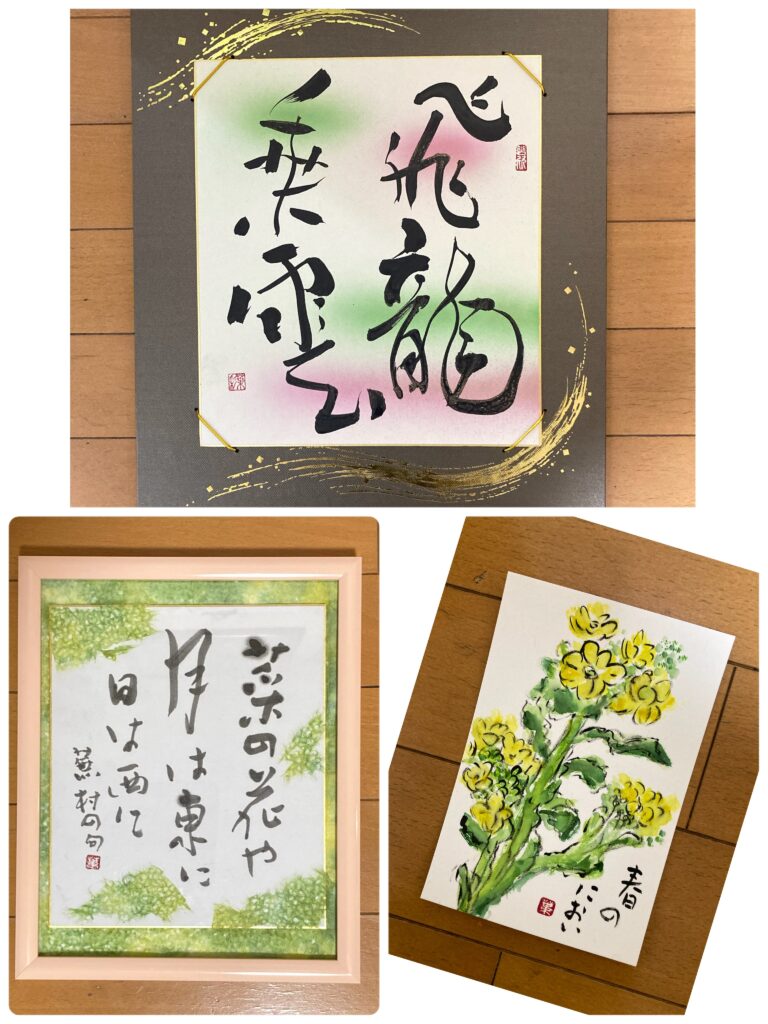 飛龍
乗雲
菜の花や
月は東に
日は西に
蕪村の句
春の
におい